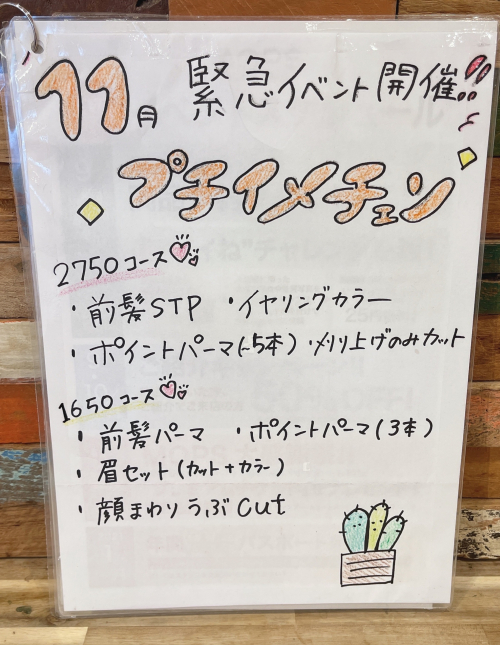 11月 緊急イベント開催!!
プチイメチェン
2750コース
・前髪STP ・イヤリングカラー
・ポイントパーマ(~5本) ・刈り上げのみカット
1650コース
・前髪パーマ ・ポイントパーマ(3本)
・眉セット(カット+カラー)
・顔まわりうぶcut